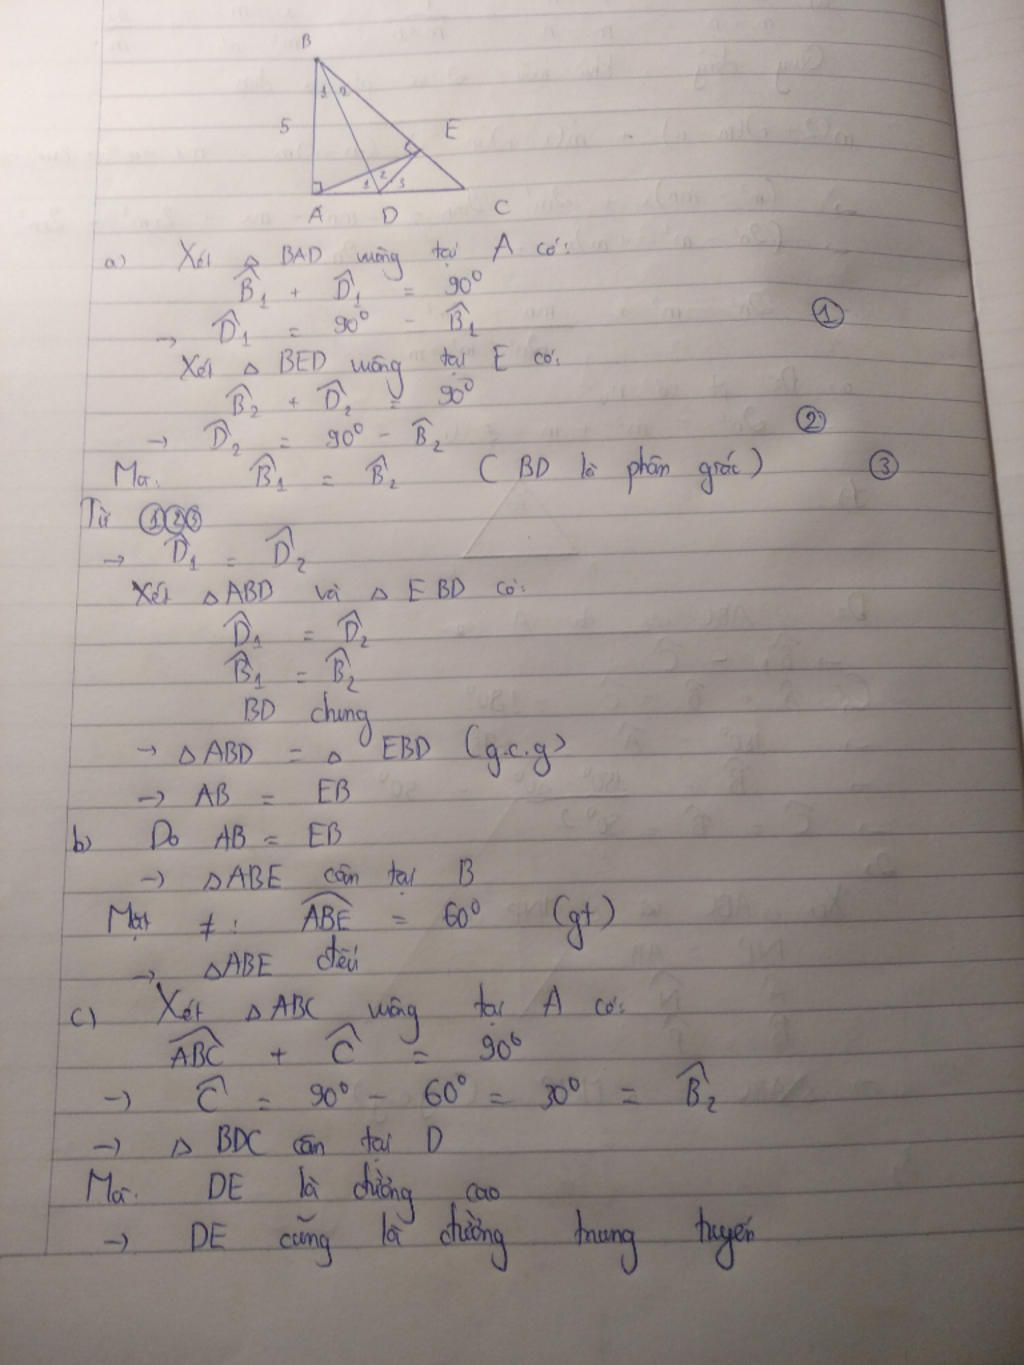 B
1 2
5
E
2
1 3
A D C
a) Xét △ BAD vuông tại A có:
B̂₁ + D̂₁ = 90⁰
→ D̂₁ = 90⁰ - B̂₁ ①
Xét △ BED vuông tại E có:
B̂₂ + D̂₂ = 90⁰
→ D̂₂ = 90⁰ - B̂₂ ②
Mà: B̂₁ = B̂₂ (BD là phân giác) ③
Từ ①②③
→ D̂₁ = D̂₂
Xét △ABD và △EBD có:
D̂₁ = D̂₂
B̂₁ = B̂₂
BD chung
→ △ABD = △ EBD (g.c.g)
→ AB = EB
b) Do AB = EB
→ △ABE cân tại B
Mặt ≠: ABÊ = 60⁰ (gt)
→ △ABE đều
c) Xét △ABC vuông tại A có:
ABĈ + Ĉ = 90⁰
→ Ĉ = 90⁰ - 60⁰ = 30⁰ = B̂₂
→ △ BDC cân tại D
Mà: DE là đường cao
→ DE cũng là đường trung tuyến